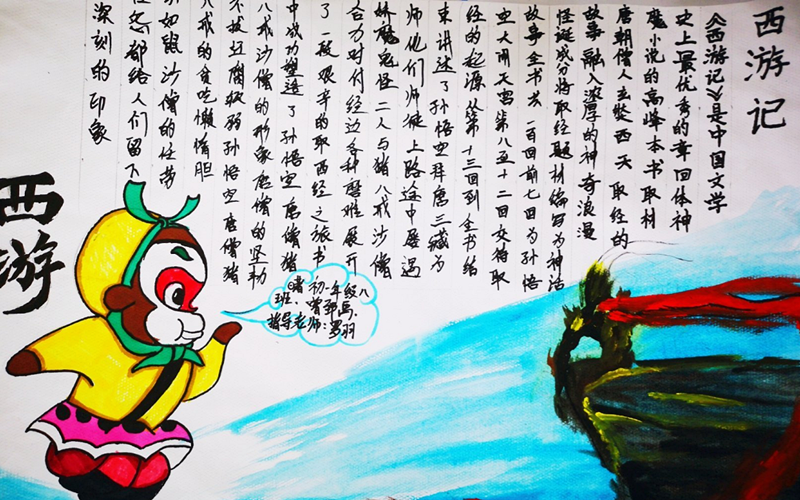 西游记
《西游记》是中国文学
史上最优秀的章回体神
魔小说的高峰本书取材
唐朝僧人玄奘西天取经的
故事融入浓厚的神奇浪漫
怪诞成分将取经题材编写为神话
故事全书共一百回前七回为孙悟
空大闹天宫第八至十二回交待取
经的起源从第十三回到全书结
束讲述了孙悟空拜唐三藏为
师他们师徒上路途中屡遇
妖魔鬼怪二人与猪八戒沙僧
合力对付经边各种磨难展开
了一段艰辛的取西经之旅书
中成功塑造了孙悟空唐僧猪
八戒沙僧的形象唐僧的坚韧
不拔迂腐软弱孙悟空唐僧猪
八戒的贪吃懒惰胆
如鼠沙僧的任劳
任怨都给人们留下
深刻的印象
西游
初一年级八
班
指导老师:罗羽